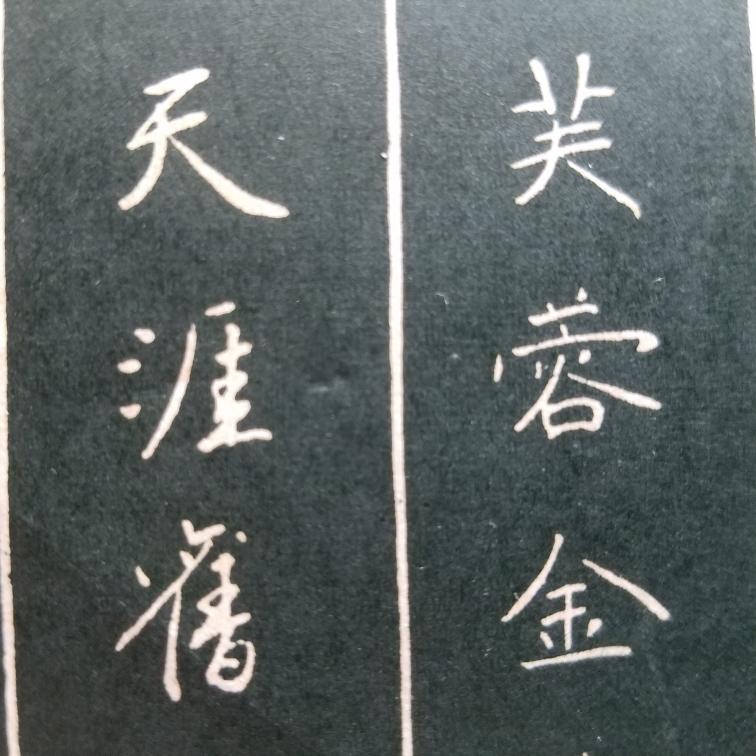 芙蓉金
天涯舊